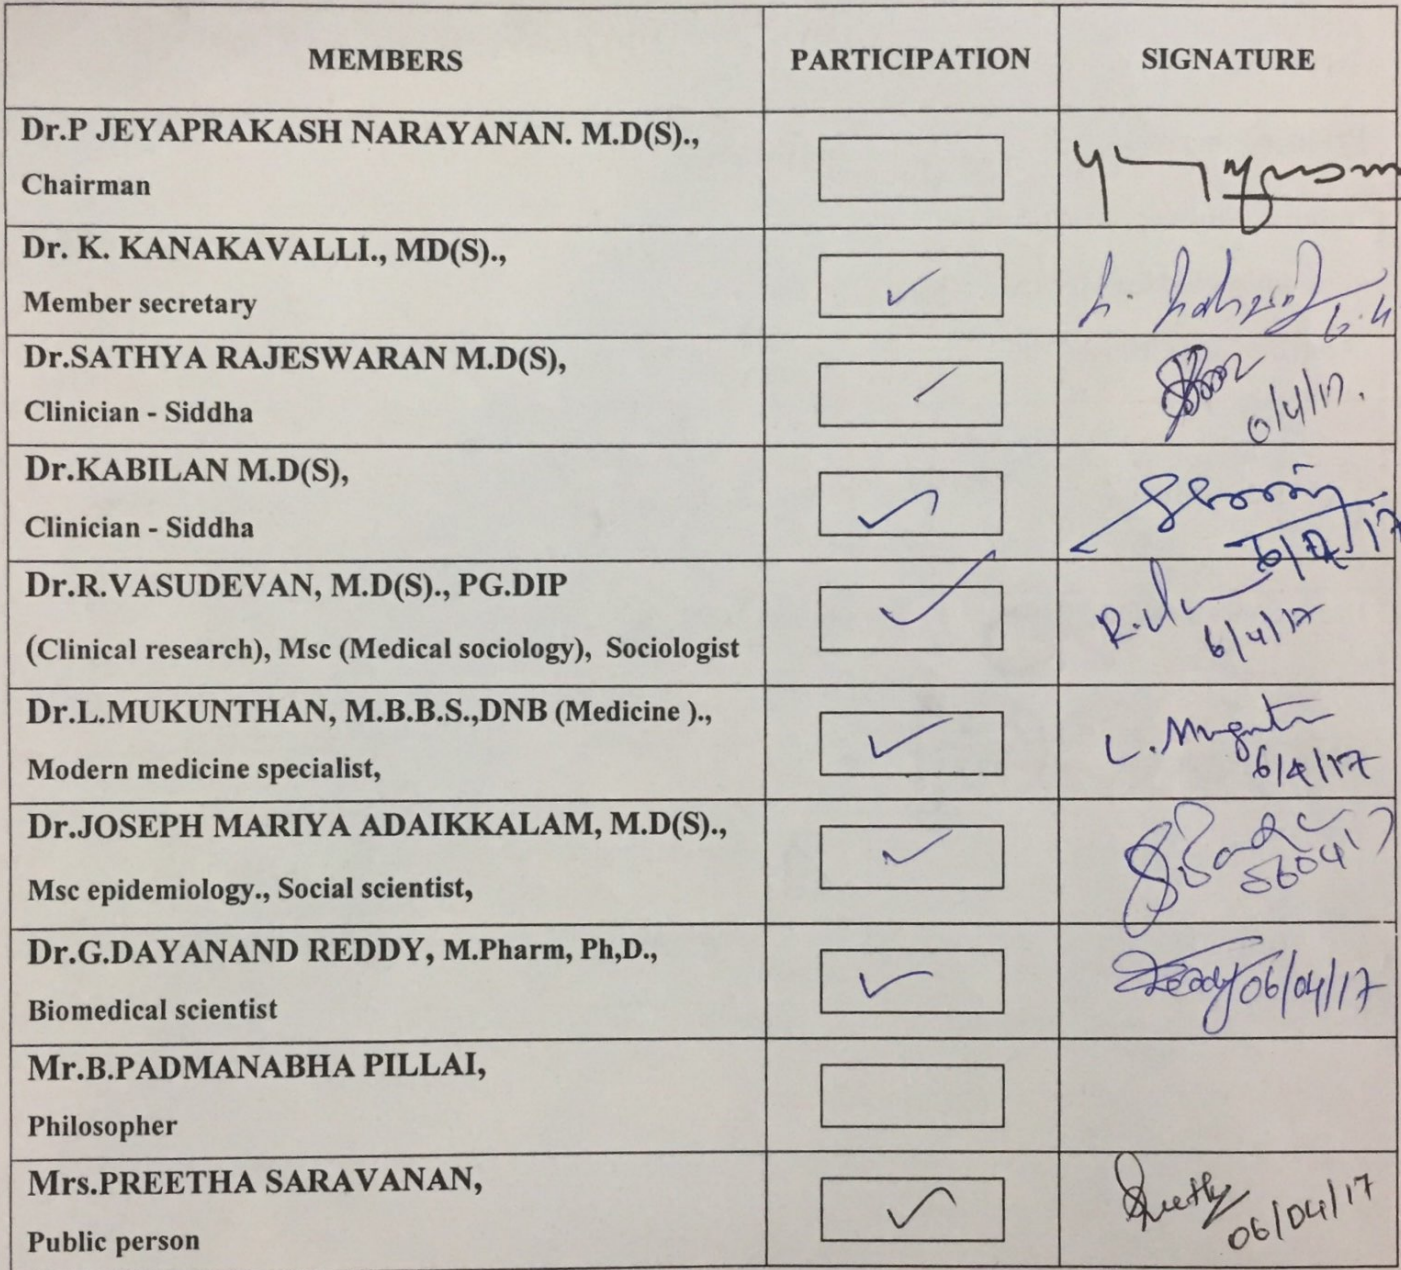 MEMBERS PARTICIPATION SIGNATURE
Dr.P JEYAPRAKASH NARAYANAN. M.D(S).,
Chairman
Dr. K. KANAKAVALLI., MD(S).,
Member secretary
Dr.SATHYA RAJESWARAN M.D(S),
Clinician - Siddha
Dr.KABILAN M.D(S),
Clinician - Siddha
Dr.R.VASUDEVAN, M.D(S)., PG.DIP
(Clinical research), Msc (Medical sociology), Sociologist
6/4/17
Dr.L.MUKUNTHAN, M.B.B.S.,DNB (Medicine ).,
Modern medicine specialist,
6/4/17
Dr.JOSEPH MARIYA ADAIKKALAM, M.D(S).,
Msc epidemiology., Social scientist,
Dr.G.DAYANAND REDDY, M.Pharm, Ph,D.,
Biomedical scientist
06/04/17
Mr.B.PADMANABHA PILLAI,
Philosopher
Mrs.PREETHA SARAVANAN,
Public person
06/04/17